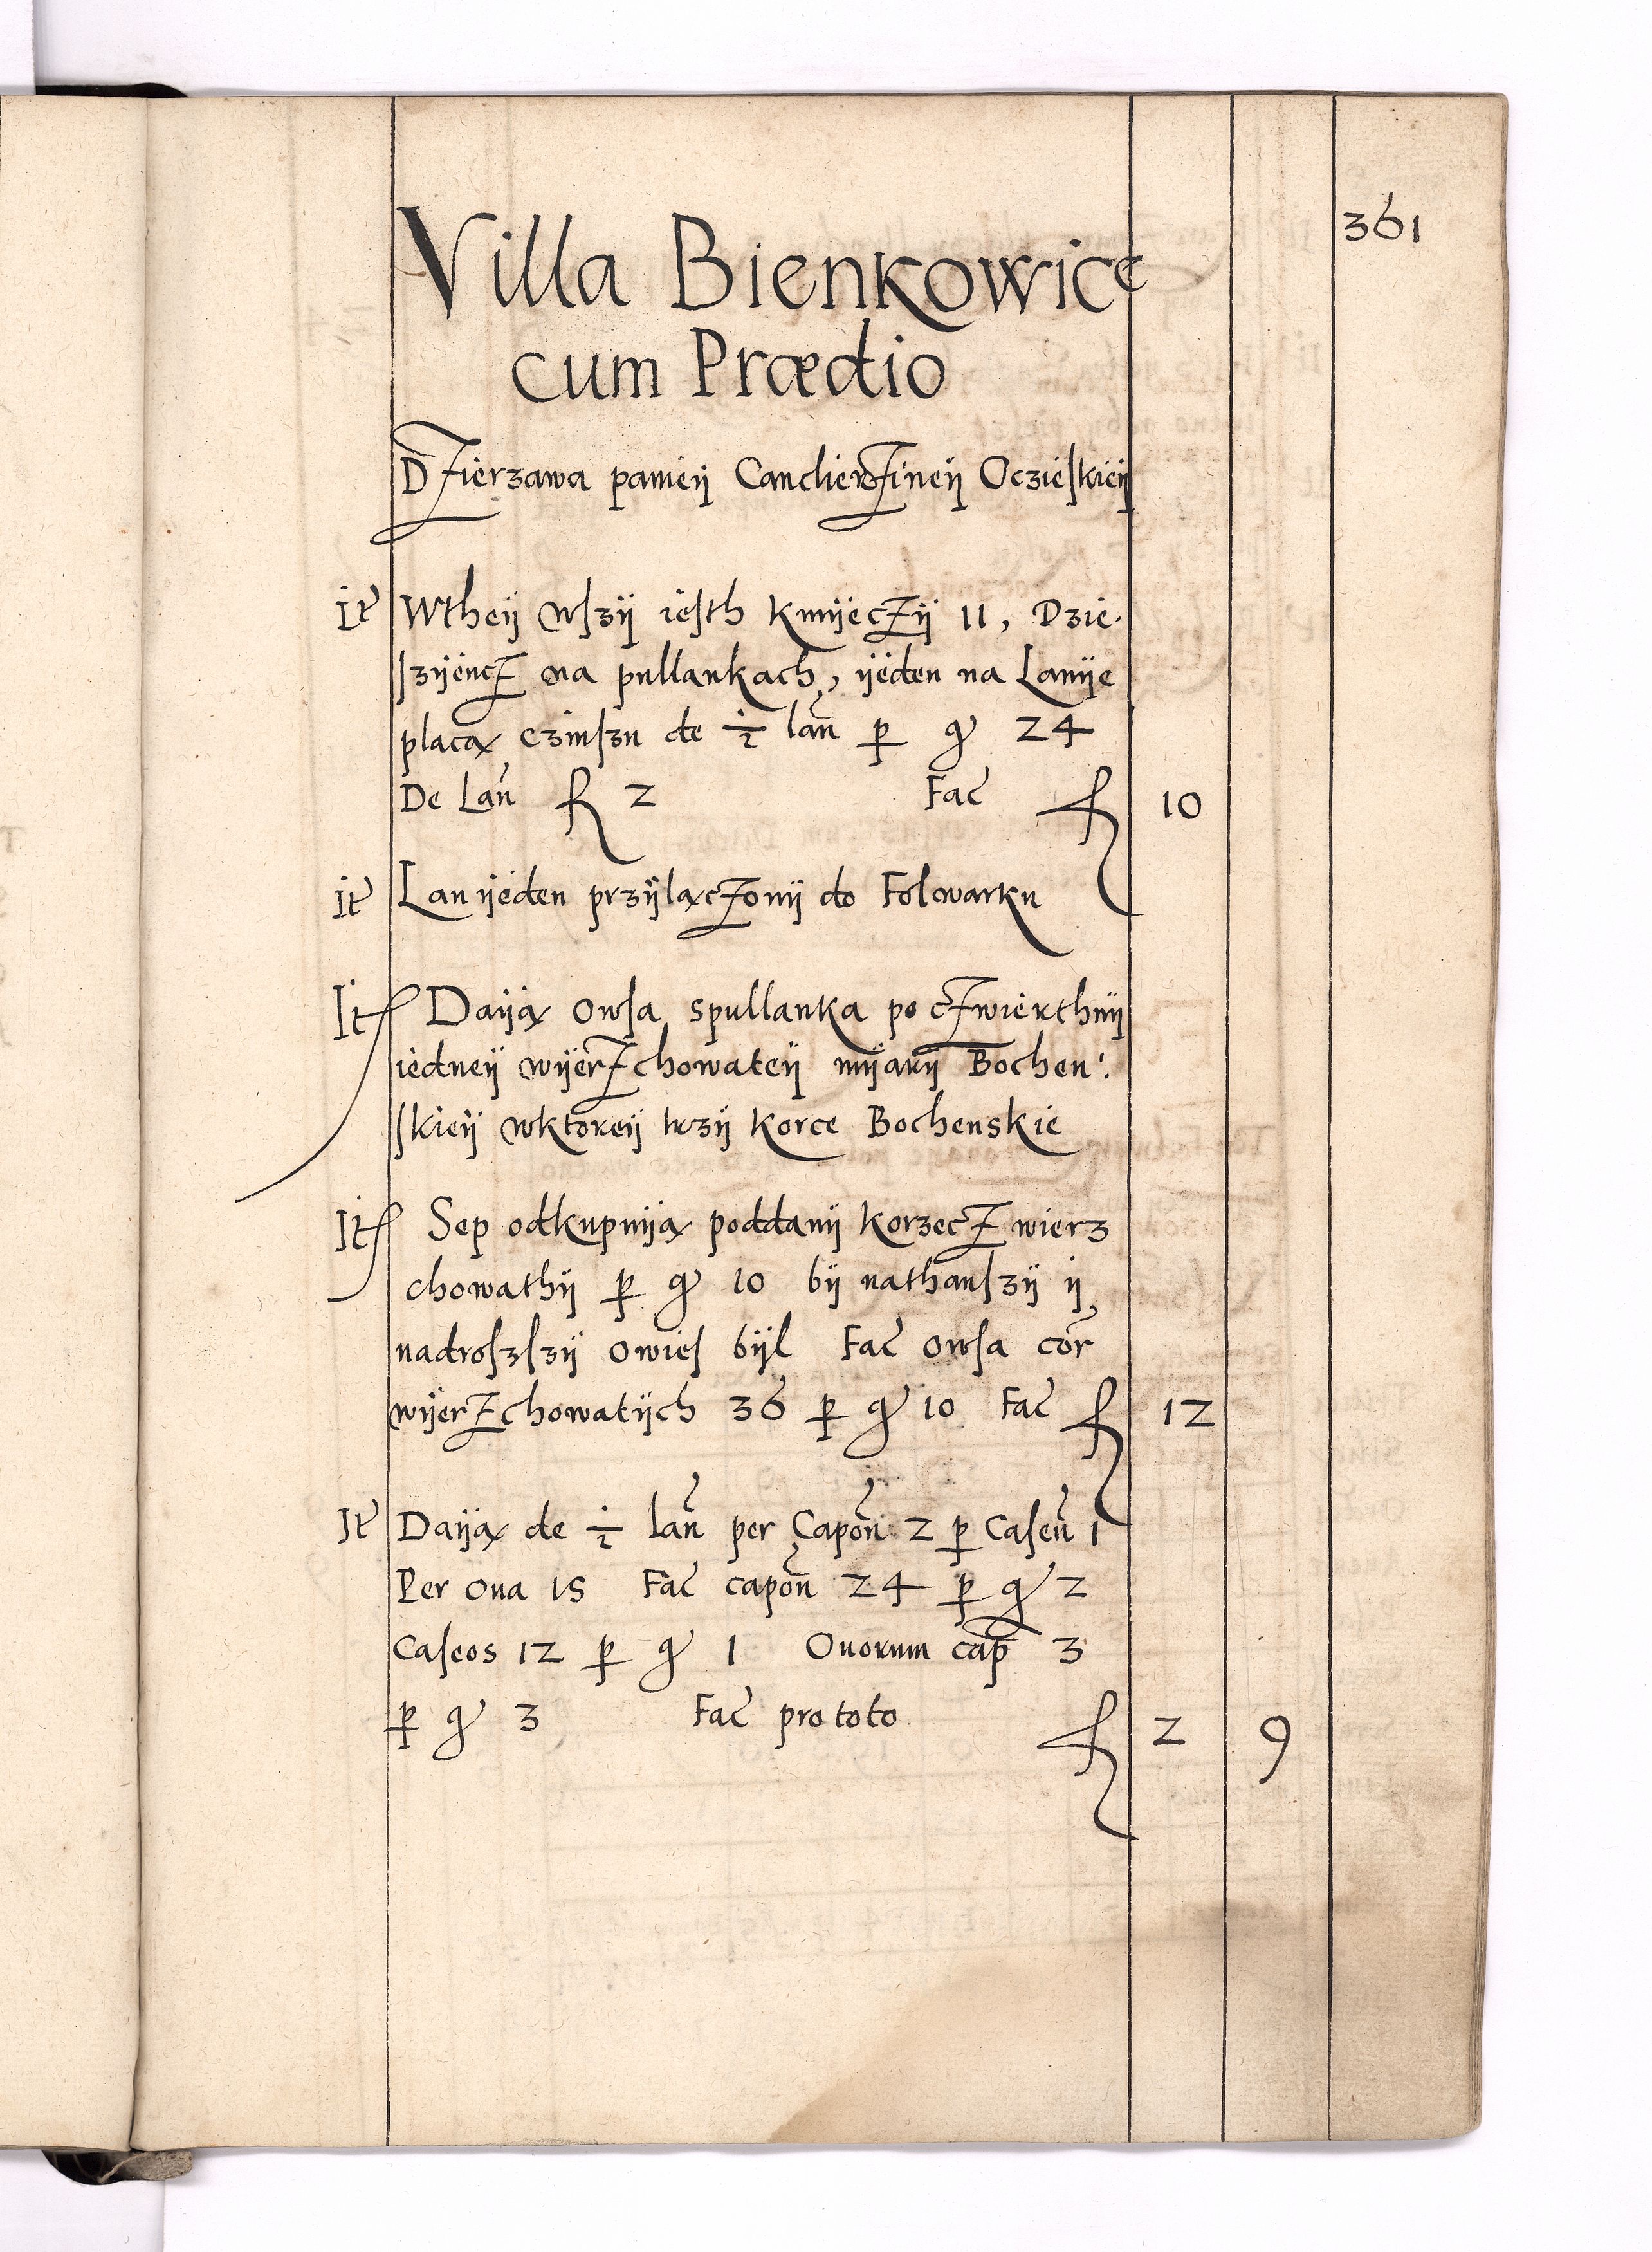 361
Villa Bienkowice
cum Prædio
Dzierzawa pamieÿ Canclierzineÿ Oczieskieÿ
It Wtheÿ wszÿ iesth kmÿeczÿ 11, Dzie.
szÿencz na pullankach, ÿeden na Lanÿe
placą czinszu de ½ lan̄ ꝑ gͬ 24
De Lan̄ fl 2 Fac̄ fl 10
It Lan ÿeden przÿlączonÿ do Folwarku
It Daÿą owsa spullanka po czwierthnÿ
iedneÿ wÿerzchowateÿ mÿarÿ Bochen:
skieÿ wktoreÿ trzÿ korce Bochenskie
It Sep odkupuÿą poddanÿ korzecz wierz
chowathÿ ꝑ gͬ 10 bÿ nathanszÿ ÿ
nadroszszÿ owies bÿl Fac̄ owsa cor̄
wÿerzchowatÿch 36 ꝑ gͬ 10 Fac̄ fl 12
It Daÿą de ½ lan̄ per Capon̄ 2 ꝑ Caseu̅ 1
Per ova 15 Fac̄ capon̄ 24 ꝑ gͬ 2
Caseos 12 ꝑ gͬ 1 Ovorum cap̄ 3
ꝑ gͬ 3 Fac̄ pro toto fl 2 9